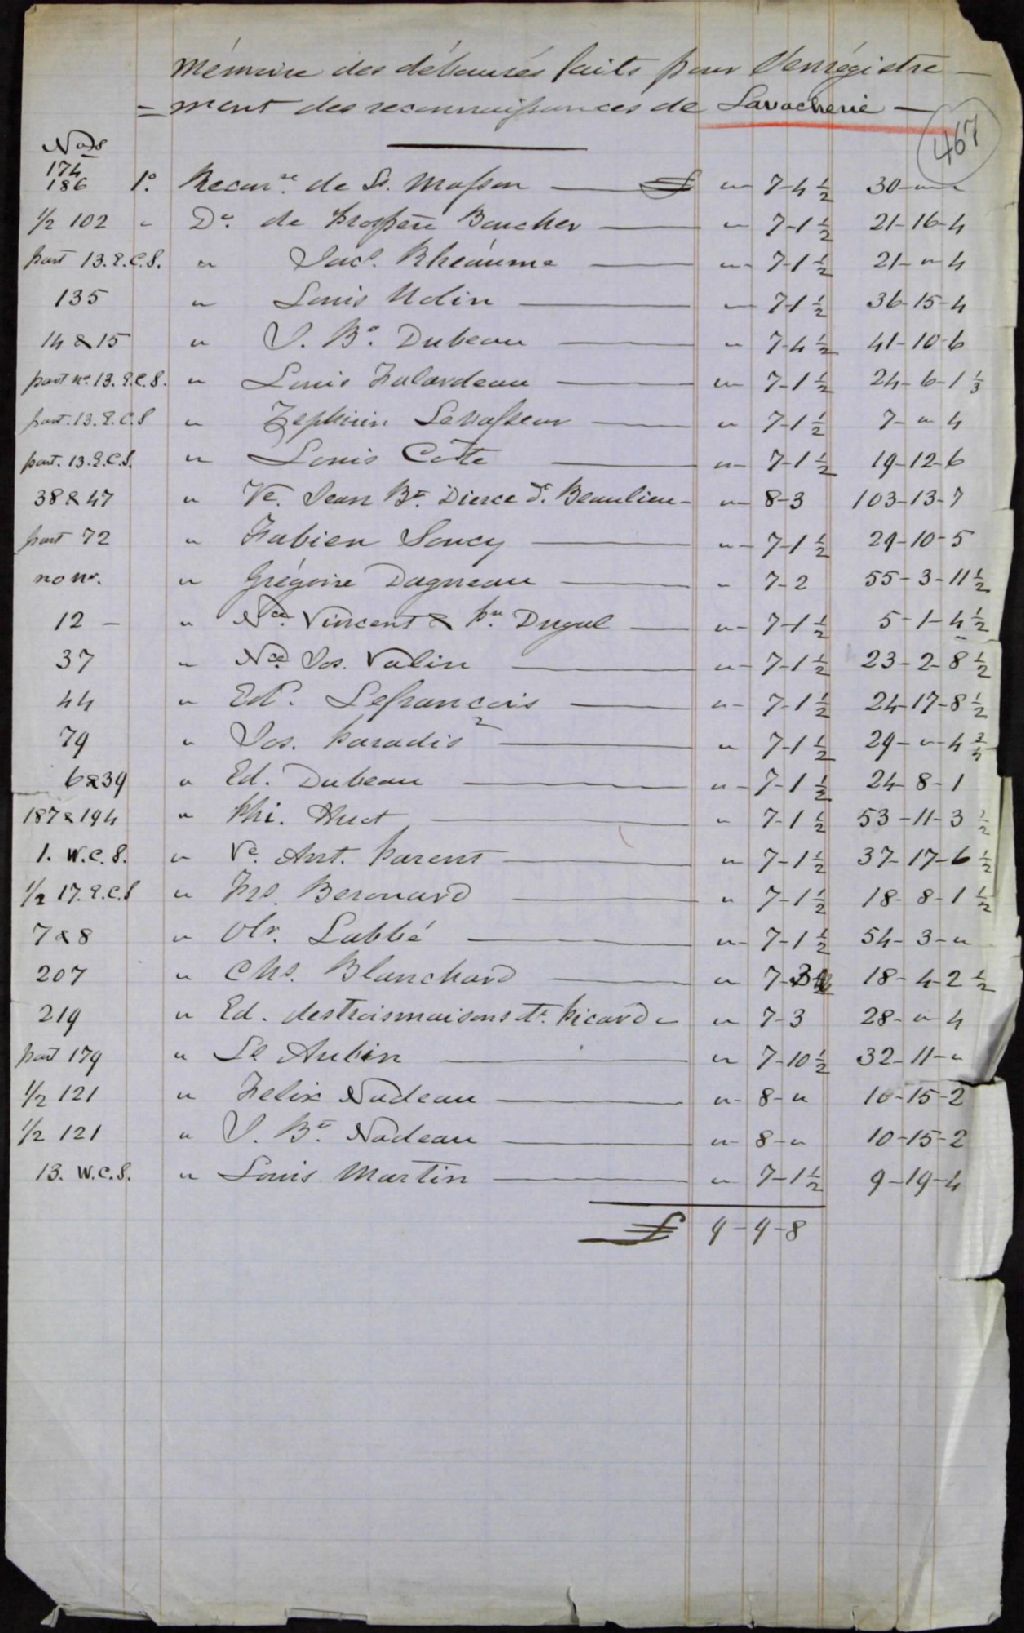 Mémoire des débourés faits pour l'enrégistre-
= ment des reconnaissances de Lavacherie —
467
Nos
174
186 1º. Reconce. de Ls. Masson — £ " 7-4½ 30-"-"
½ 102 " Do. de Prospère Boucher — " 7-1½ 21-16-4
part 13.E.C.S. " Jacs. Rhéaume — " 7-1½ 21-"-4
135 " Louis Nolin — " 7-1½ 36-15-4
14 & 15 " J. Be. Dubeau — " 7-4½ 41-10-6
part No. 13.E.C.S. " Louis Falardeau — " 7-1½ 24-6-1⅓
part. 13.E.C.S " Zephirin Levasseur — " 7-1½ 7-"-4
part. 13.E.C.S. " Louis Côte — " 7-1½ 19-12-6
38 & 47 " Ve. Jean Be. Dierce dt. Beaulieu - " 8-3 103-13-7
part 72 " Fabien Soucy — " 7-1½ 29-10-5
no no. " Grégoire Dagneau — " 7-2 55-3-11½
12 - " Nce. Vincent & Pre Dugal — " 7-1½ 5-1-4½
37 " Nce. Jos. Valin — " 7-1½ 23-2-8½
44 " Ed. Lefrancois — " 7-1½ 24-17-8½
79 " Jos. Paradis 2 — " 7-1½ 29-"-4¾
6 & 39 " Ed. Dubeau — " 7-1½ 24-8-1
187 & 194 " Phi. Huot — " 7-1½ 53-11-3½
1. W.C.S. " Ve. Ant. Parent — " 7-1½ 37-17-6½
½ 17.E.C.S " Frs. Berouard — " 7-1½ 18-8-1½
7 & 8 " Olr. Labbé — " 7-1½ 54-3-"
207 " Chs. Blanchard — " 7-3 18-4-2½
219 " Ed. destroismaisons dt. Picard - " 7-3 28-"-4
part 179 " Ls Aubin — " 7-10½ 32-11-"
½ 121 " Felix Nadeau — " 8-" 10-15-2
½ 121 " J. Be. Nadeau — " 8-" 10-15-2
13. W.C.S. " Louis Martin — " 7-1½ 9-19-4
£ 9-9-8